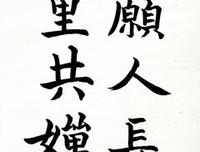 願人長
里共嬋